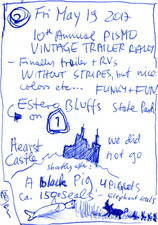 ② Fri May 19 2017
10th Annual PISMO
VINTAGE TRAILER RALLY
- Finally trailer + RVs
WITHOUT STRIPES, but nice
colors etc... FUNKY + FUN
Estero Bluffs State Park
on 1
Hearst
Castle
we did
not go
shortly after:
A black PIG 4 piglets
ca. 150 seals
- elephant seals